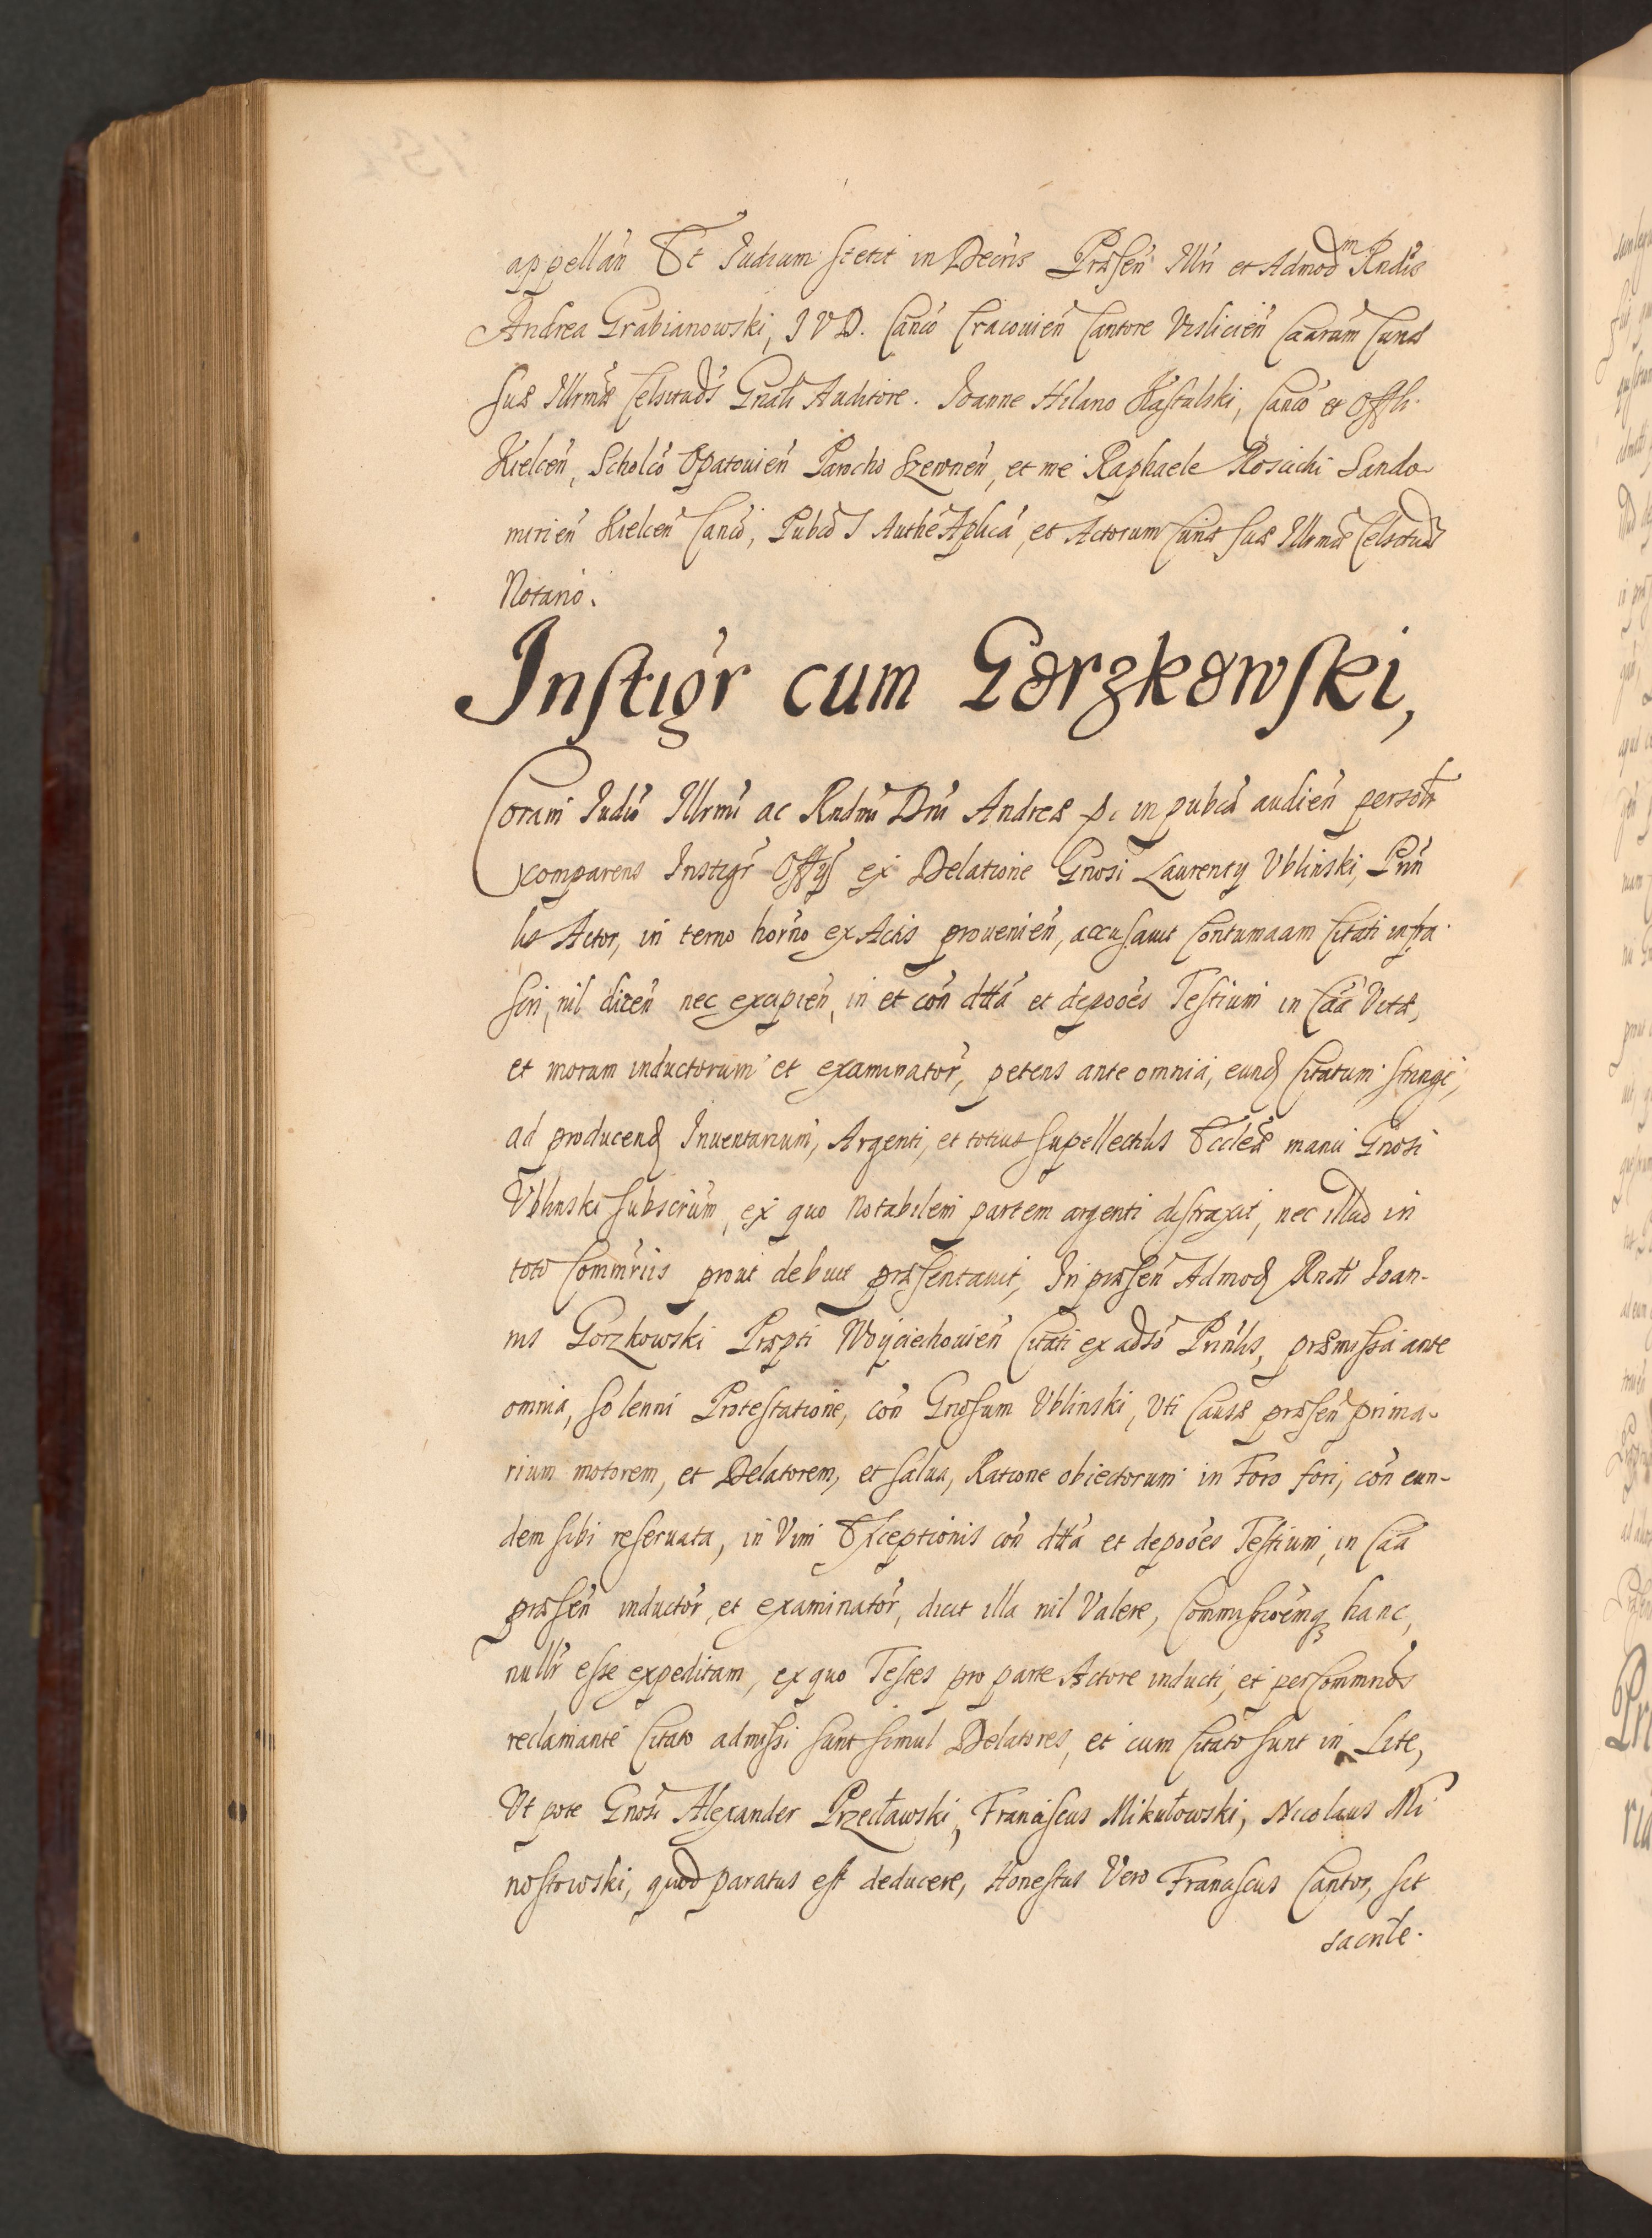 appellań Et Iudium stetit in Decris Præseń Illri et Admodm Rndis
Andrea Grabianowski, I V D. Canco Cracouień Cantore Vislicień Caarum Curiæ
suæ Illrmæ Celsitudis Gnali Auditore. Ioanne Hilario Kastulski, Canco et Offli
Kielceń, Scholco Opatouień Parocho Szewneń, et me Raphaele Roscichi Sando-
mirień Kielceń Canco, Pubco S Authe Aplica, et Actorum Curiæ suæ Illrmæ Celsitudis
Notario.
Instigr cum Gorzkowski,
Coram Iudio Illrmi ac Rndmi Dni Andreæ p. in pubca audień persolr
comparens Instigr Offy ex Delatione Gnosi Laurenty Vblinski, Prin
lis Actor, in terno horno ex Actis prouenień, accusauit Contumaam Citati infra
scri, nil diceń nec excipień, in et coń dtta et depooes Testium in Caa Vitæ,
et morum inductorum et examinator, petens ante omnia, eund Citatum stringi,
ad producend Inuentarium, Argenti, et totius supellectilis Eccleæ manu Gnosi
Vblinski subscrium, ex quo notabilem partem argenti distraxit, nec illud in
toto Commriis prout debuit præsentauit, In præseń Admod Rndi Ioan-
nis Gorzkowski Præpti Woyciechouień Citati ex adso Prinlis, præmissa ante
omnia, solenni Protestatione, coń Gnosum Vblinski, Vti Causæ præseń prima-
rium motorem, et Delatorem, et salua, Ratione obiectorum in Foro fori, coń eun-
dem sibi reseruata, in Vim Exceptionis coń dtta et depooes Testium, in Caa
præseń inductor, et examinator, dicit illa nil Valere, Commissioemq hanc,
nullr esse expeditam, ex quo Testes pro parte Actore inducti, et per Commrios
reclamante Citato admissi sunt simul Delatores, et cum Citato sunt in Lite,
Vt pote Gnosi Alexander Przecławski, Franciscus Mikułowski, Nicolaus Mi
nostowski, quod paratus est deducere, Honestus Vero Franciscus Cantor, sit
sacrile.